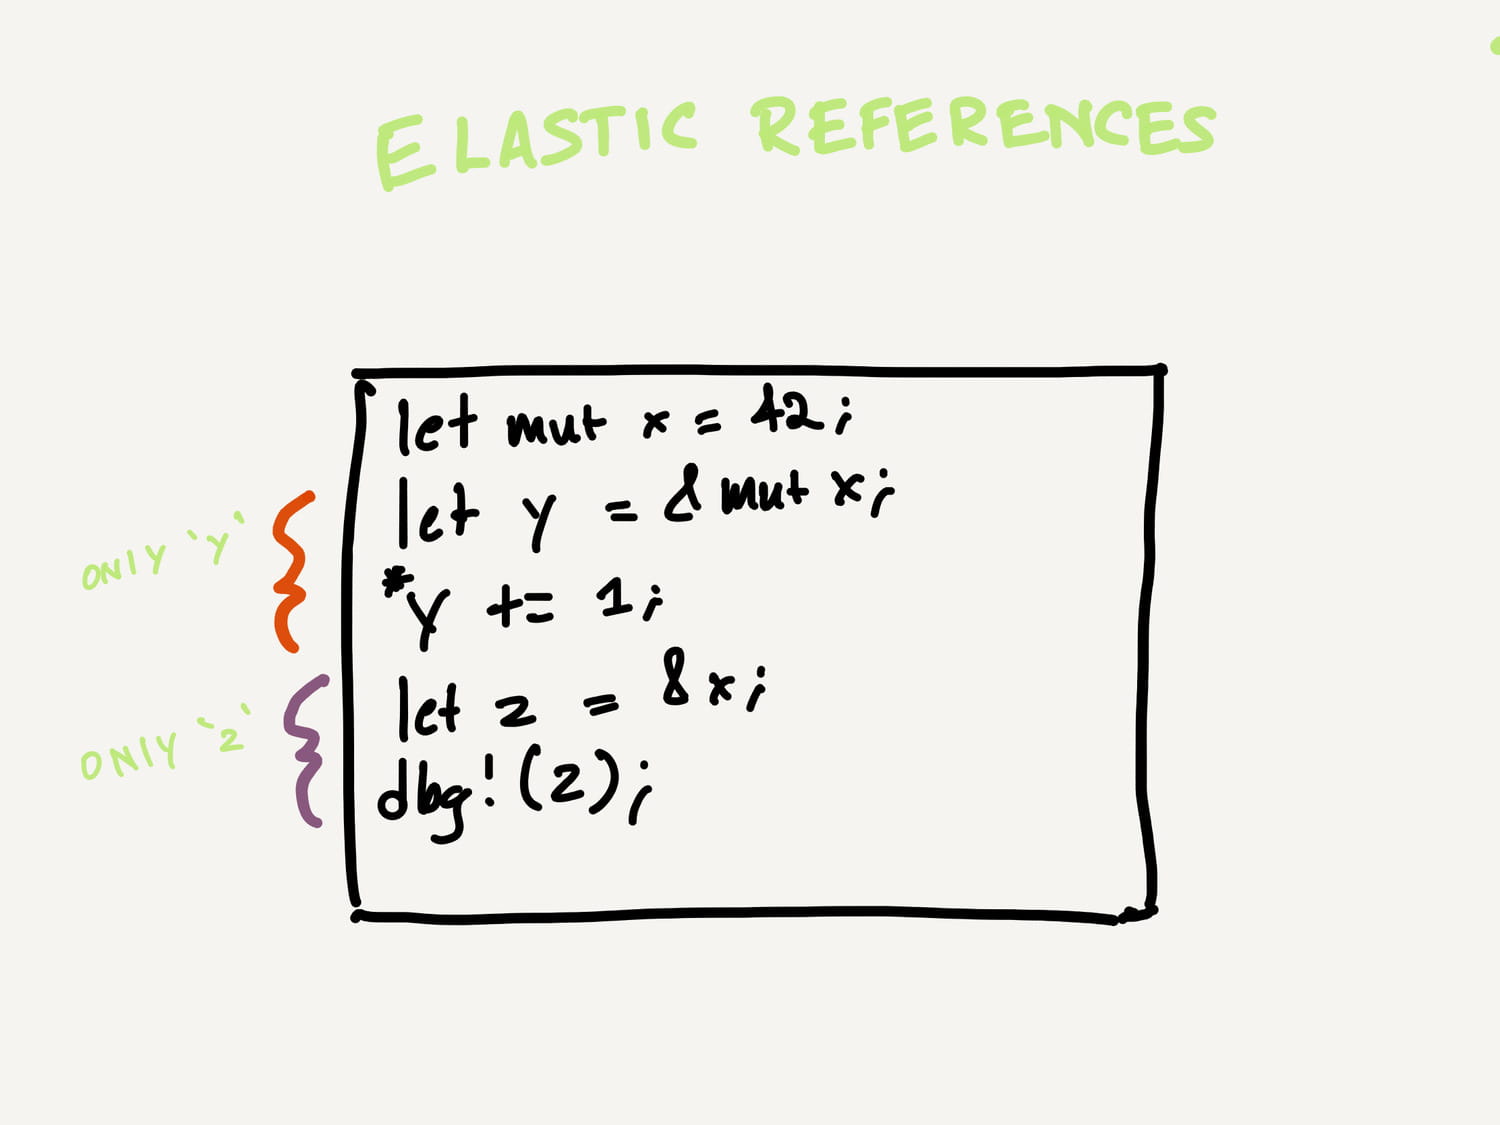 ELASTIC REFERENCES
let mut x = 42;
let y = &mut x;
*y += 1;
let z = &x;
dbg!(z);
ONLY `Y`
ONLY `z`